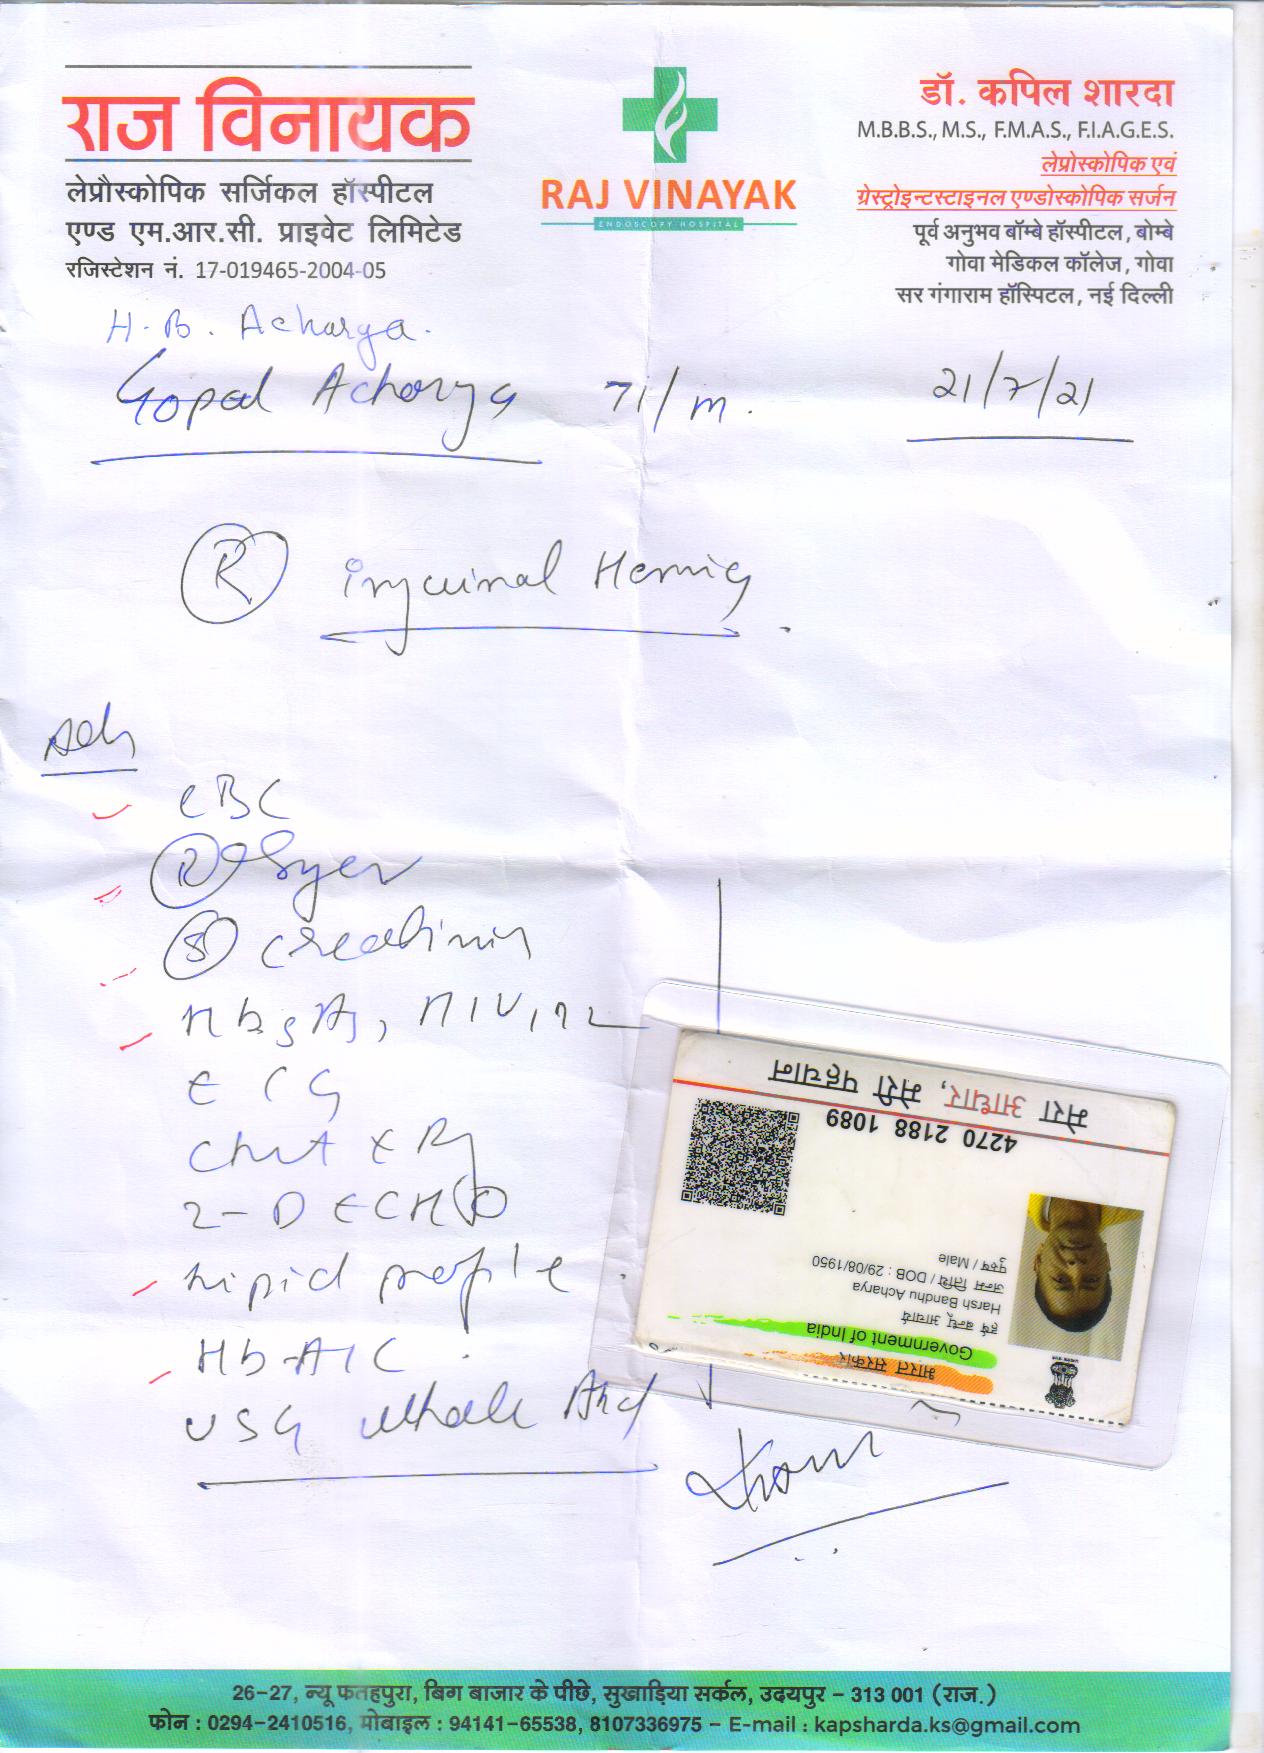 राज विनायक
लेप्रौस्कोपिक सर्जिकल हॉस्पीटल
एण्ड एम.आर.सी. प्राइवेट लिमिटेड
रजिस्टेशन नं. 17-019465-2004-05
RAJ VINAYAK
ENDOSCOPY HOSPITAL
डॉ. कपिल शारदा
M.B.B.S., M.S., F.M.A.S., F.I.A.G.E.S.
लेप्रोस्कोपिक एवं
ग्रेस्ट्रोइन्टस्टाइनल एण्डोस्कोपिक सर्जन
पूर्व अनुभव बॉम्बे हॉस्पीटल, बोम्बे
गोवा मेडिकल कॉलेज, गोवा
सर गंगाराम हॉस्पिटल, नई दिल्ली
H. B. Acharya.
Gopal Acharya 71/m. 21/7/21
R inguinal Hernia
Adv
CBC
R Sugar
S creatinin
HbsAg, HIV,
ECG
Chest X Ray
2-D ECHO
Lipid profile
Hb-A1C
USG whole Abd
भारत सरकार
Government of India
हर्ष बन्धु आचार्य
Harsh Bandhu Acharya
जन्म तिथि / DOB : 29/08/1950
पुरुष / Male
4270 2188 1089
मेरा आधार, मेरी पहचान
26-27, न्यू फतहपुरा, बिग बाजार के पीछे, सुखाड़िया सर्कल, उदयपुर - 313 001 (राज.)
फोन : 0294-2410516, मोबाइल : 94141-65538, 8107336975 - E-mail : kapsharda.ks@gmail.com